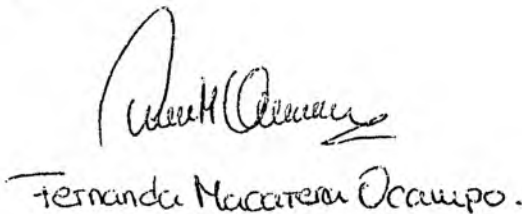 Fernanda Macarena Ocampo.